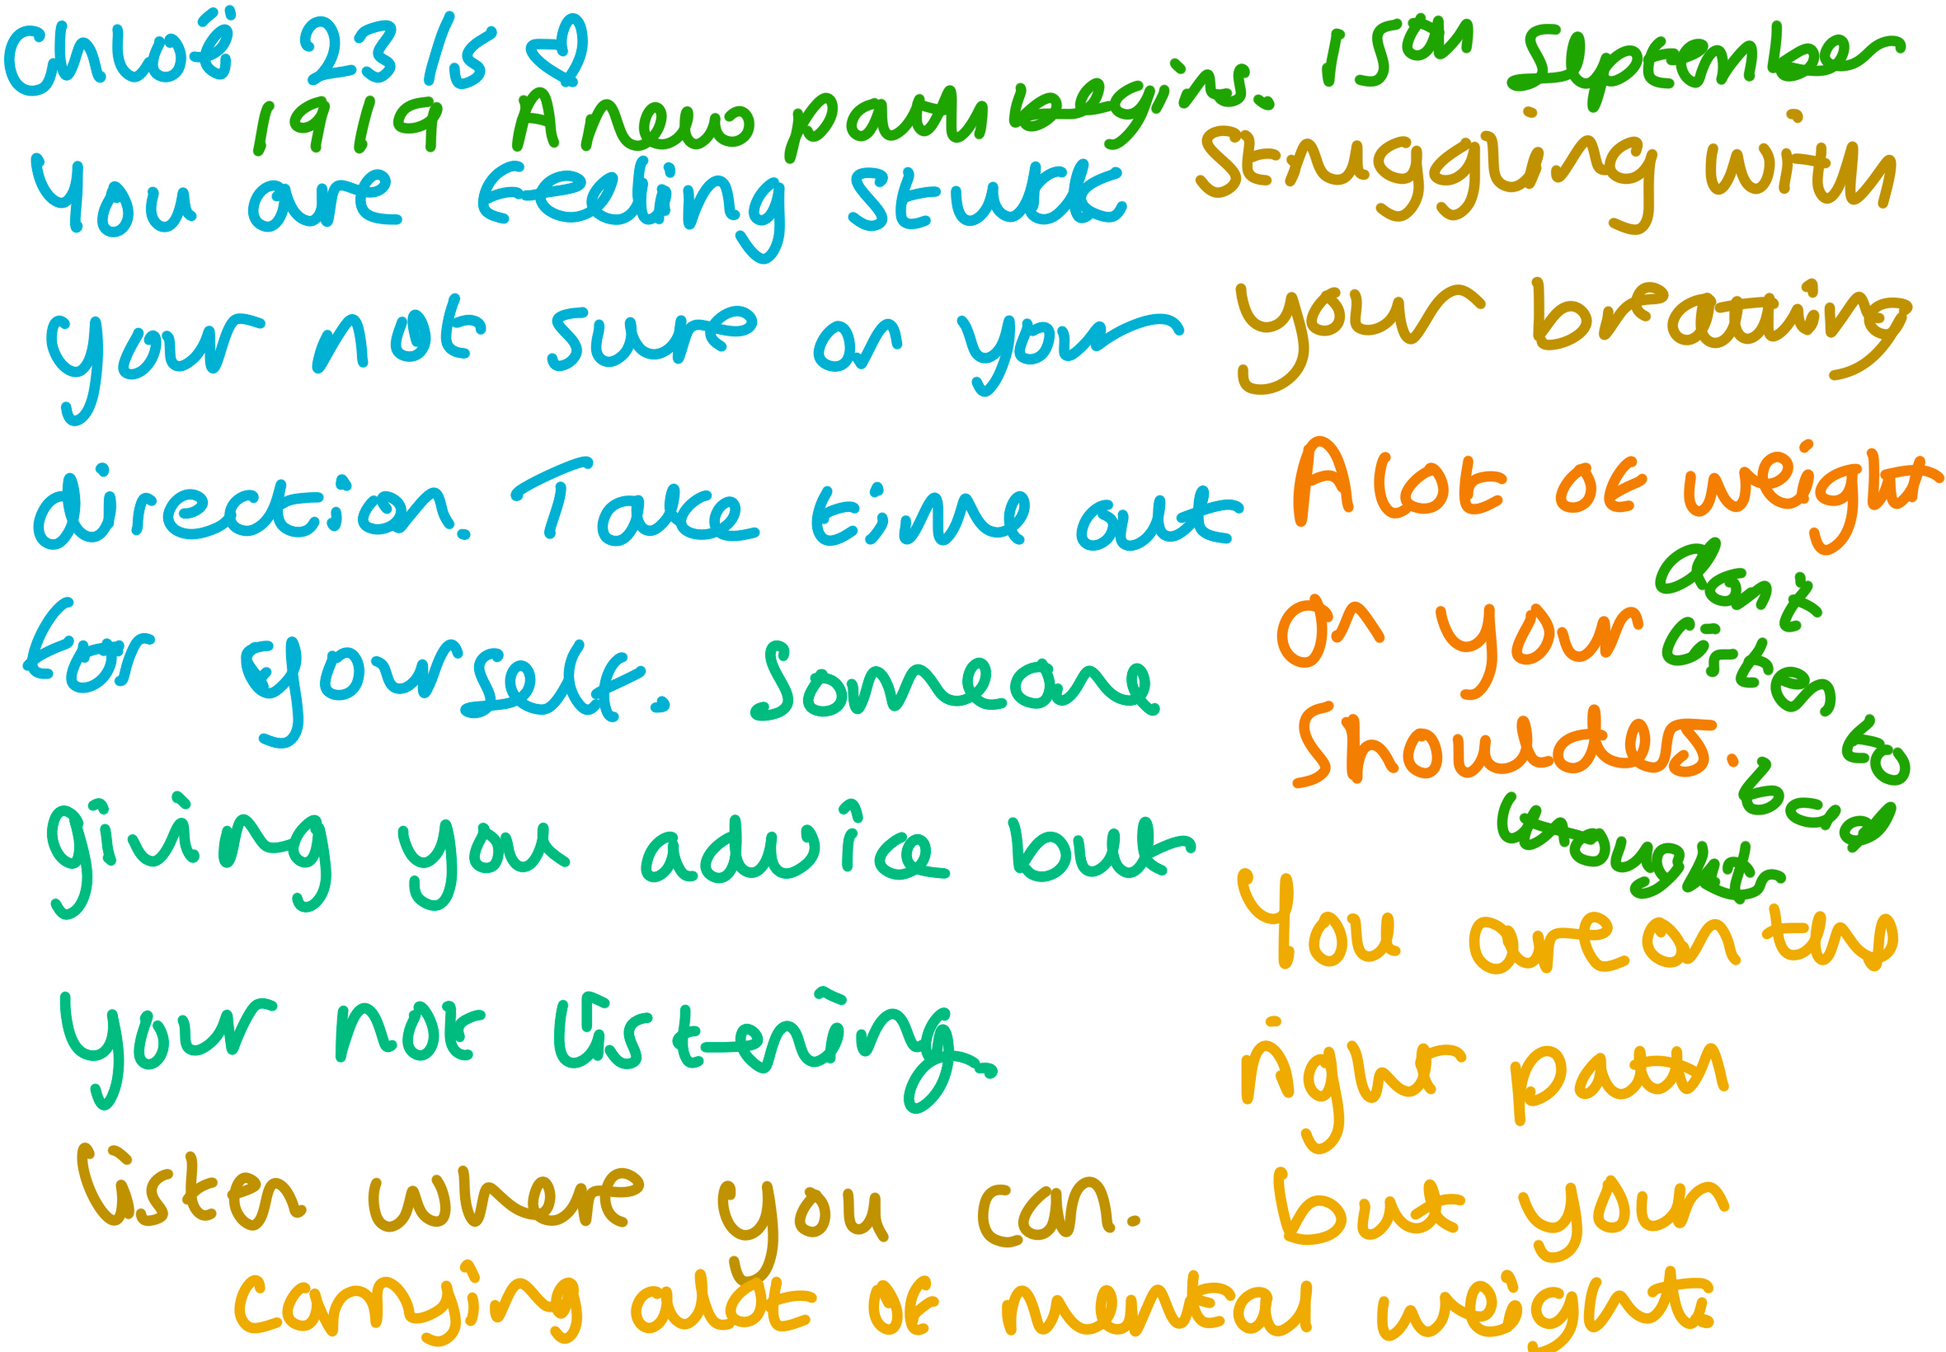 Chloë 23/5 ♡
1919 A new path begins.
15th September
You are feeling stuck
your not sure on your
direction. Take time out
for yourself. Someone
giving you advice but
your not listening.
listen where you can.
Struggling with
your breathing
A lot of weight
on your
shoulders.
don't
listen to
bad
thoughts
You are on the
right path
but your
carrying alot of mental weight.